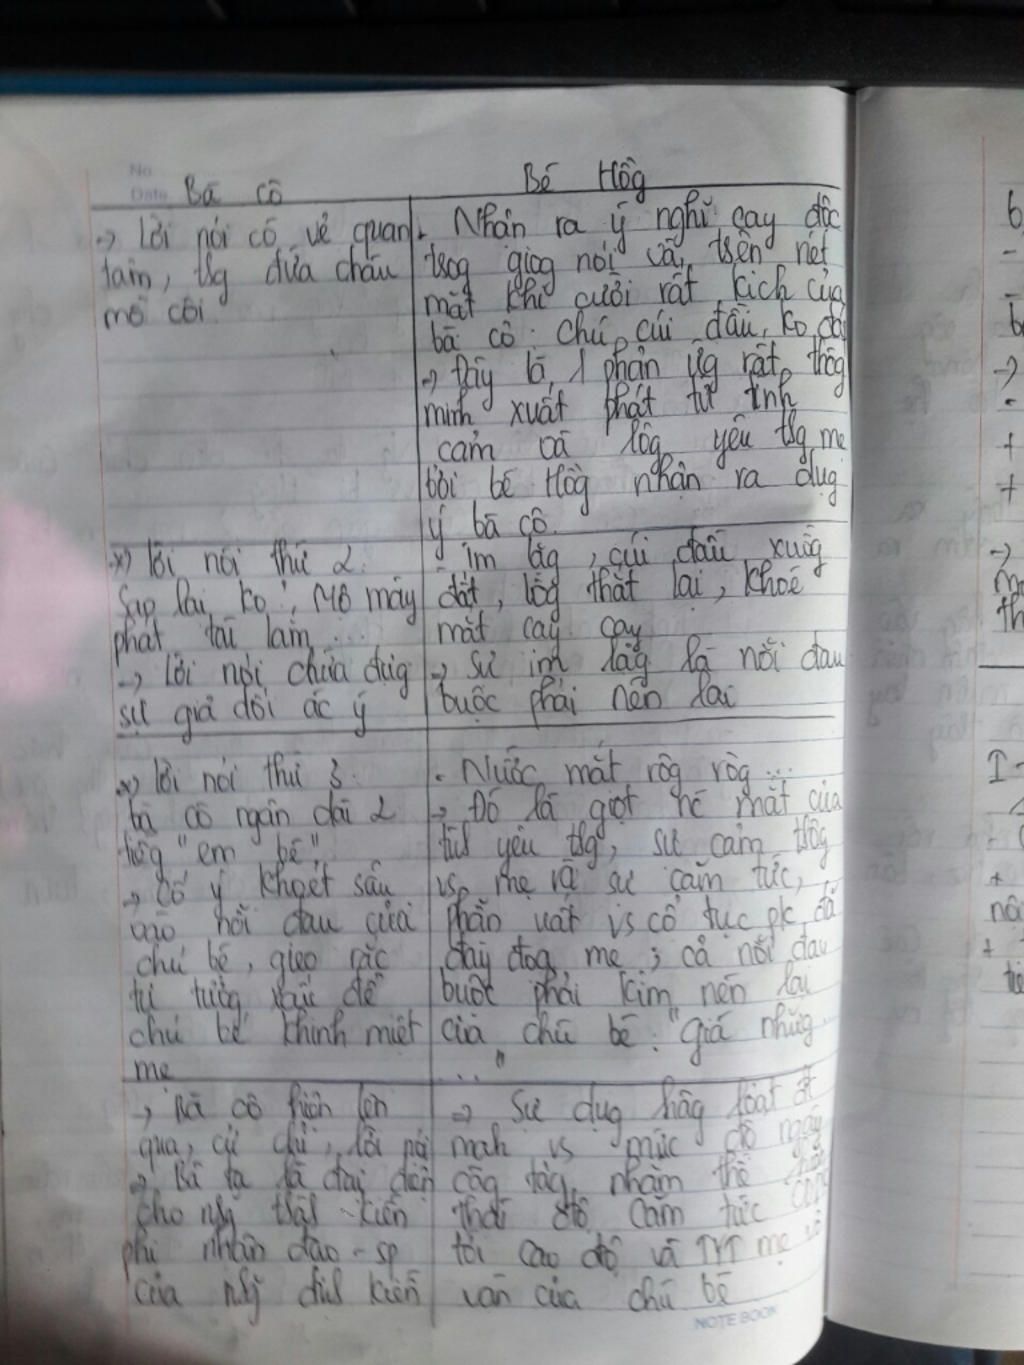 No
Date
Bà cô
Bé Hồg
-> Lời nói có vẻ quan
tâm, tsg đứa cháu
mồ côi
- Nhận ra ý nghĩ cay độc
trog giọg nói và trên nét
mặt khi cười rất kịch của
bà cô: chú cúi đầu, ko đá
-> Đây là 1 phản ứg rất thôg
minh xuất phát từ tình
cảm và lòg yêu tsg mẹ
bởi bé Hồg nhận ra dụg
ý bà cô.
*) lời nói thứ 2:
Sao lại ko, Mợ mày
phát tài lắm...
-> Lời nói chứa đựg
sự giả dối ác ý
- im lặg, cúi đầu xuốg
đất, lòg thắt lại, khoé
mắt cay cay
-> Sự im lặg là nỗi đau
buộc phải nén lại
*) lời nói thứ 3.
bà cô ngân dài 2
tiếg "em bé"
-> Cố ý khoét sâu
vào nỗi đau của
chú bé, gieo rắc
tư tưởg xấu để
chú bé khinh miệt
mẹ
- Nước mắt ròg ròg...
-> Đó là giọt nc mắt của
tìh yêu tsg, sự cảm thôg
vs mẹ và sự căm tức,
phẫn uất vs cổ tục pk đã
đày đoạ mẹ; cả nỗi đau
buộc phải kìm nén lại
của chú bé: "giá nhữg
..."
-> Bà cô hiện lên
qua, cử chỉ, lời nói
-> Bà ta là đại diện
cho nhg thàh kiến
phi nhân đạo - sp
của nhg địh kiến
-> Sử dụg hàg loạt ĐT
mạh vs mức độ ngày
càg tăg, nhằm thể hiện
thái độ căm tức
tới cao độ và TYT mẹ vô
vàn của chú bé
NOTE BOOK